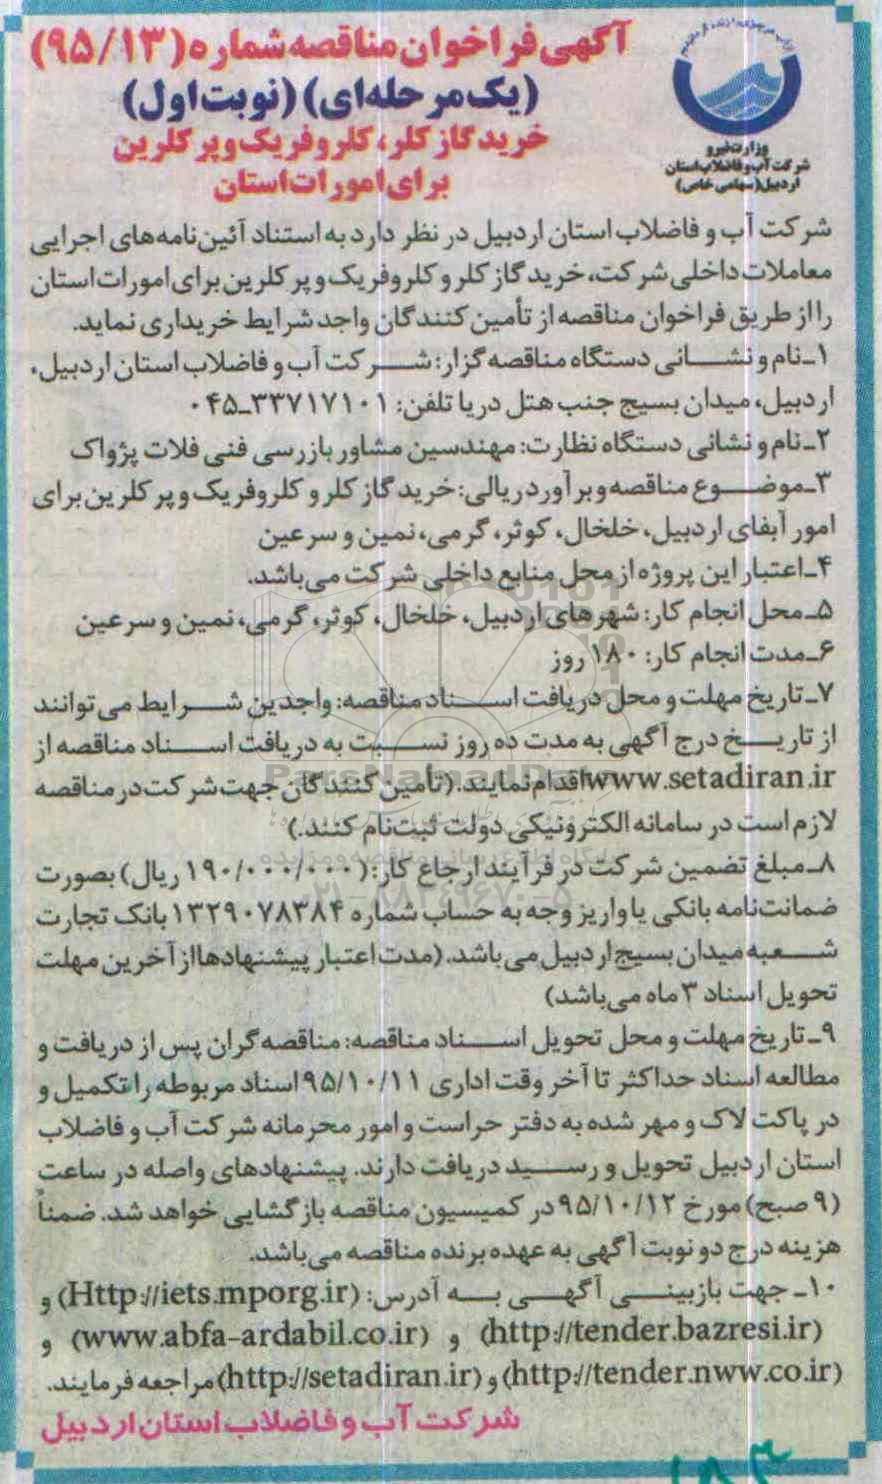 آگهی فراخوان مناقصه شماره (۹۵/۱۳)
(یک مرحله‌ای) (نوبت اول)
خرید گاز کلر، کلروفریک و پرکلرین
برای امورات استان
وزارت نیرو
شرکت آب و فاضلاب استان
اردبیل (سهامی خاص)
شرکت آب و فاضلاب استان اردبیل در نظر دارد به استناد آئین‌نامه‌های اجرایی
معاملات داخلی شرکت، خرید گاز کلر و کلروفریک و پرکلرین برای امورات استان
را از طریق فراخوان مناقصه از تأمین کنندگان واجد شرایط خریداری نماید.
۱ـ نام و نشانی دستگاه مناقصه گزار: شرکت آب و فاضلاب استان اردبیل.
اردبیل، میدان بسیج جنب هتل دریا تلفن: ۳۳۷۱۷۱۰۱ـ۰۴۵
۲ـ نام و نشانی دستگاه نظارت: مهندسین مشاور بازرسی فنی فلات پژواک
۳ـ موضوع مناقصه و برآورد ریالی: خرید گاز کلر و کلروفریک و پرکلرین برای
امور آبفای اردبیل، خلخال، کوثر، گرمی، نمین و سرعین
۴ـ اعتبار این پروژه از محل منابع داخلی شرکت می‌باشد.
۵ـ محل انجام کار: شهرهای اردبیل، خلخال، کوثر، گرمی، نمین و سرعین
۶ـ مدت انجام کار: ۱۸۰ روز
۷ـ تاریخ مهلت و محل دریافت اسناد مناقصه: واجدین شرایط می‌توانند
از تاریخ درج آگهی به مدت ده روز نسبت به دریافت اسناد مناقصه از
www.setadiran.ir اقدام نمایند. (تأمین کنندگان جهت شرکت در مناقصه
لازم است در سامانه الکترونیکی دولت ثبت‌نام کنند.)
۸ـ مبلغ تضمین شرکت در فرآیند ارجاع کار: (۱۹۰/۰۰۰/۰۰۰ ریال) بصورت
ضمانت‌نامه بانکی یا واریز وجه به حساب شماره ۱۳۲۹۰۷۸۳۸۴ بانک تجارت
شعبه میدان بسیج اردبیل می‌باشد. (مدت اعتبار پیشنهادها از آخرین مهلت
تحویل اسناد ۳ ماه می‌باشد)
۹ـ تاریخ مهلت و محل تحویل اسناد مناقصه: مناقصه گران پس از دریافت و
مطالعه اسناد حداکثر تا آخر وقت اداری ۹۵/۱۰/۱۱ اسناد مربوطه را تکمیل و
در پاکت لاک و مهر شده به دفتر حراست و امور محرمانه شرکت آب و فاضلاب
استان اردبیل تحویل و رسید دریافت دارند. پیشنهادهای واصله در ساعت
(۹ صبح) مورخ ۹۵/۱۰/۱۲ در کمیسیون مناقصه بازگشایی خواهد شد. ضمناً
هزینه درج دو نوبت آگهی به عهده برنده مناقصه می‌باشد.
۱۰ـ جهت بازبینی آگهی به آدرس: (Http://iets.mporg.ir) و
(http://tender.bazresi.ir) و (www.abfa-ardabil.co.ir) و
(http://tender.nww.co.ir) و (http://setadiran.ir) مراجعه فرمایند.
شرکت آب و فاضلاب استان اردبیل
ParsNamadData